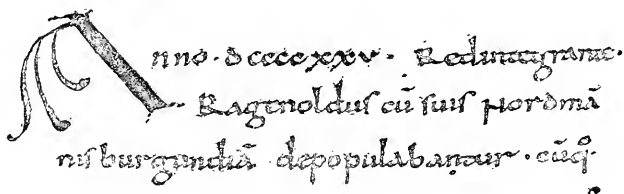 Anno · dccccxxv · Redintegrante ·
Ragenoldus cū suis Nordmā
nis burgundiā depopulabantur · cūq·